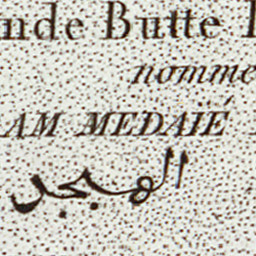 nde Butte
nomme
AM MEDAIÉ